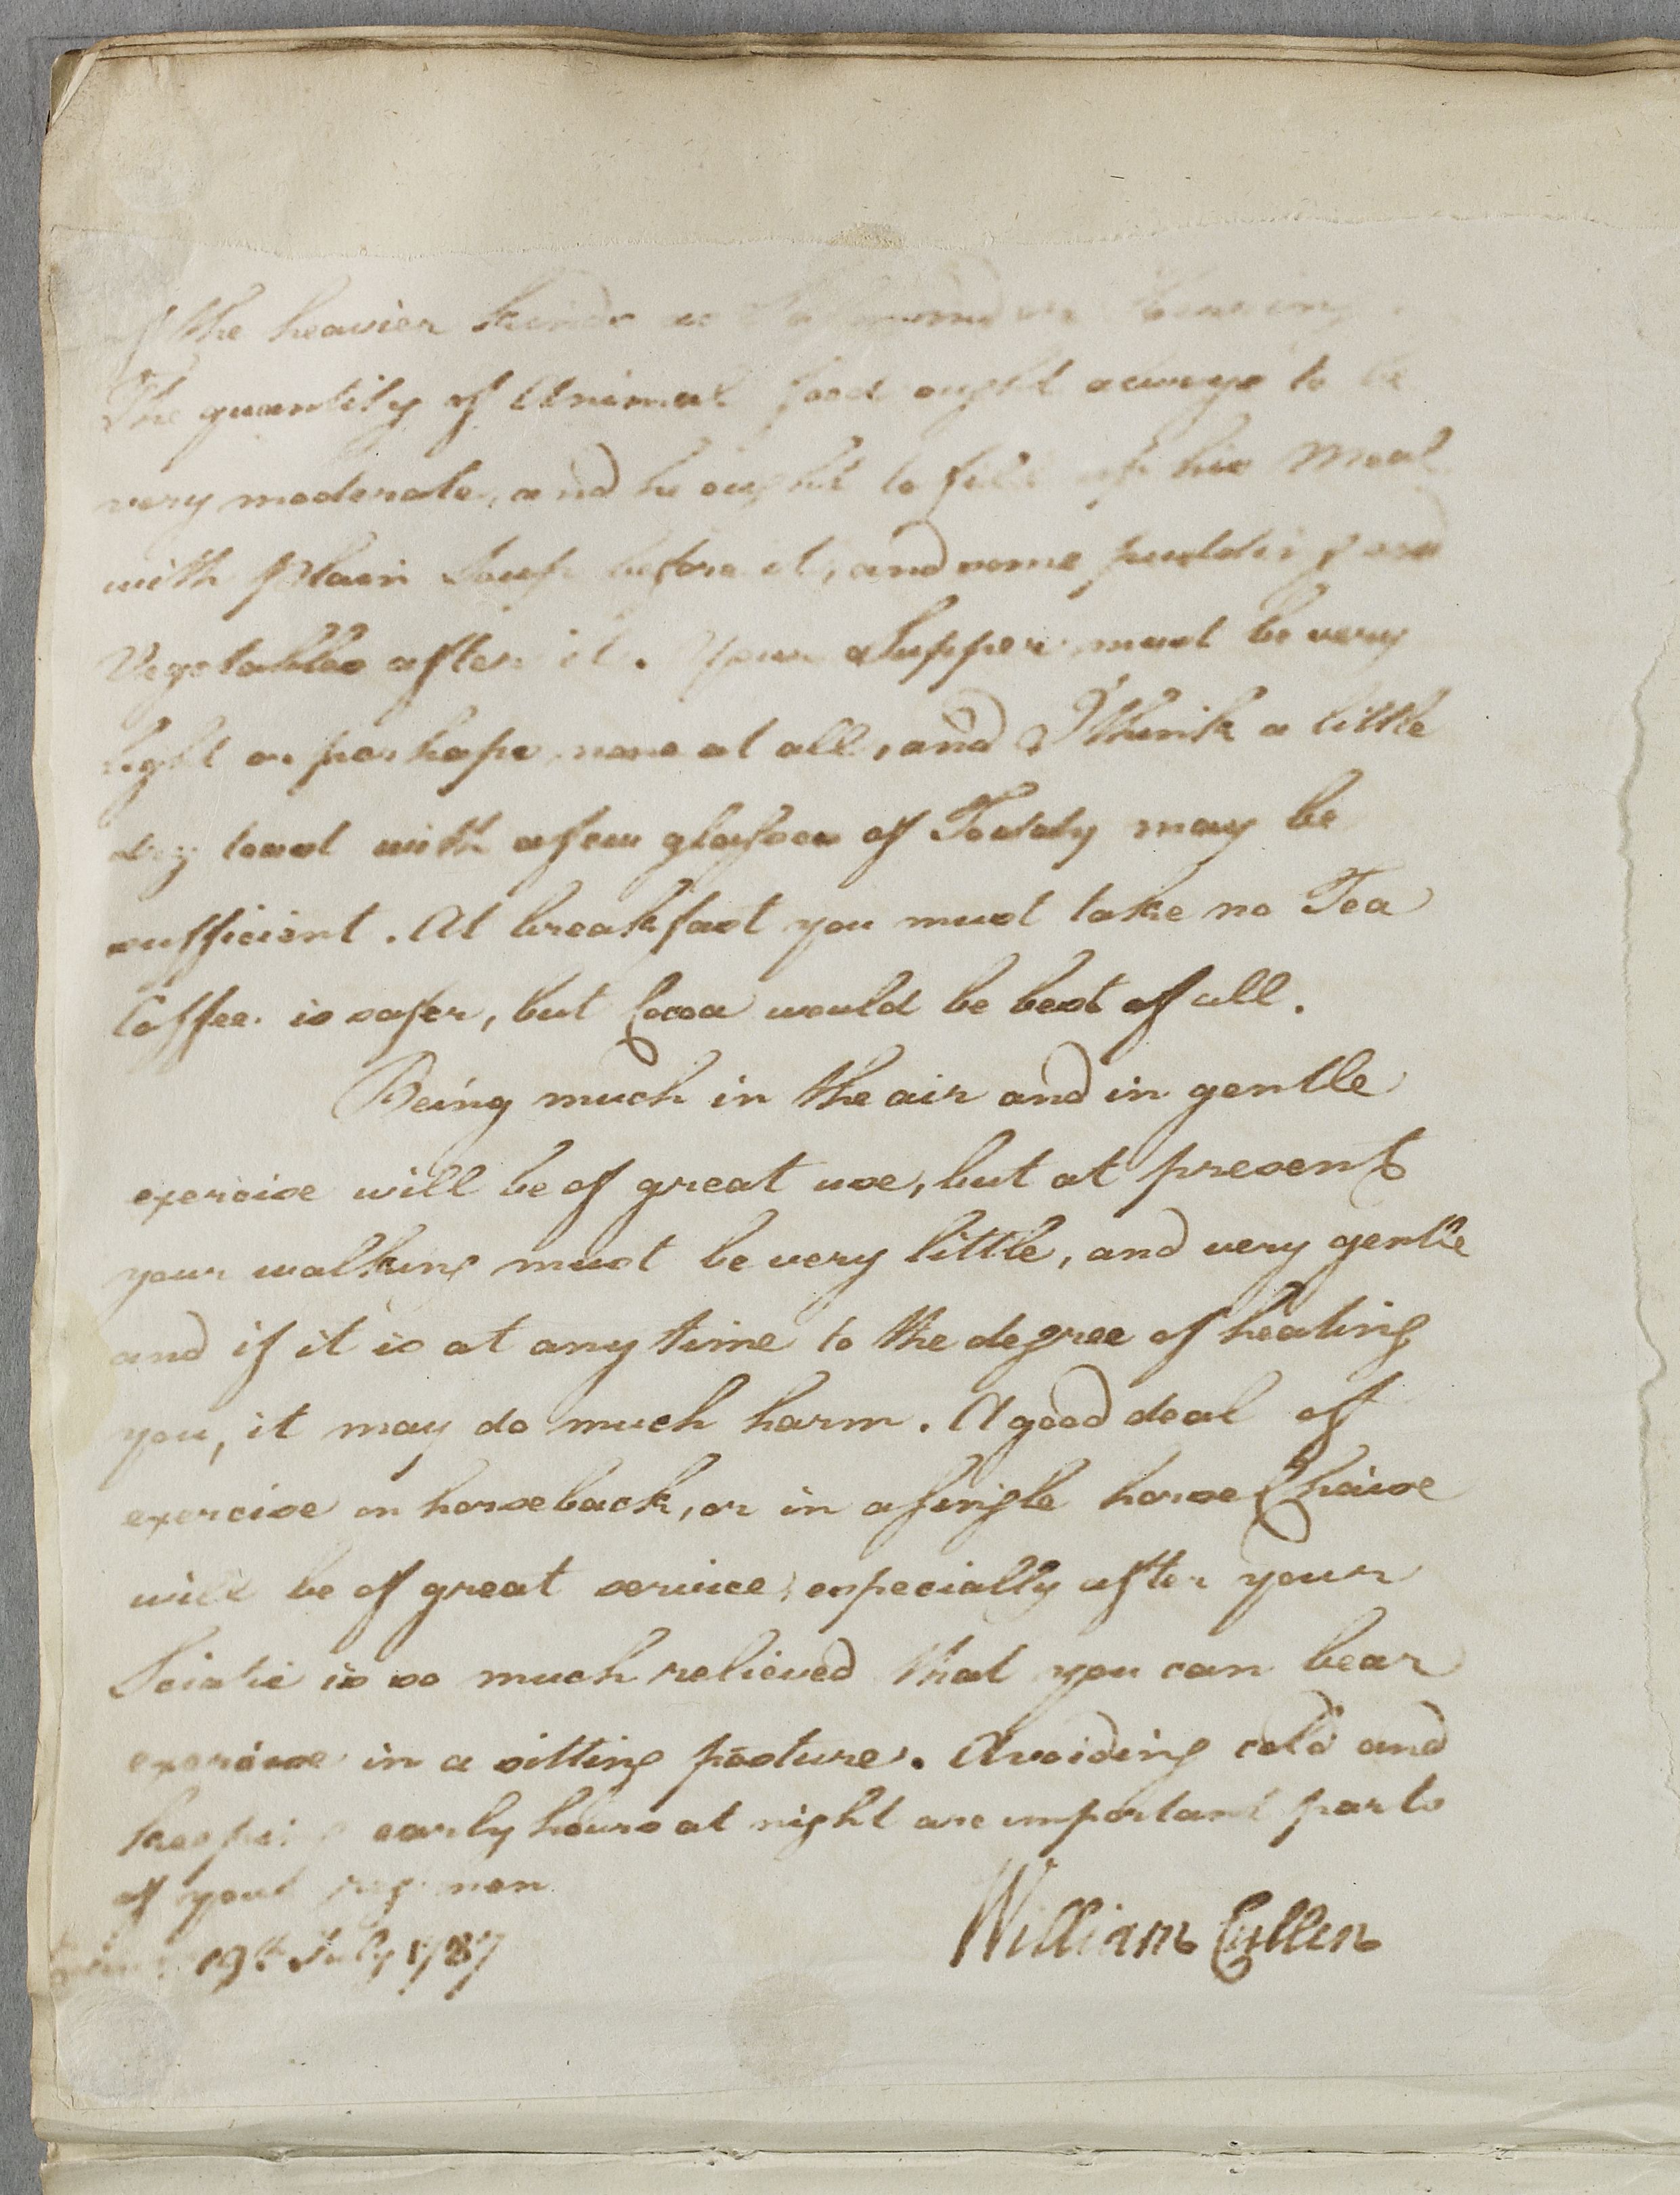 of the heavier kinds as Salmond or Herring.
The quantity of Animal food ought always to be
very moderate, and he ought to fill up his Meal
with plain Soup before it, and some pudding and
Vegetables after it. Your Supper must be very
light or perhaps none at all, and I think a little
dry toast with a few glasses of Toddy may be
sufficient. At breakfast you must take no Tea
Coffee is safer, but Cocoa would be best of all.
Being much in the air and in gentle
exercise will be of great use, but at present
your walking must be very little, and very gentle
and if it is at any time to the degree of heating
you, it may do much harm. A good deal of
exercise on horseback, or in a single horse Chaise
will be of great service, especially after your
Sciatic is so much relieved that you can bear
exercise in a sitting posture. Avoiding cold and
keeping early hours at night are important parts
of your regimen
19th July 1787
William Cullen